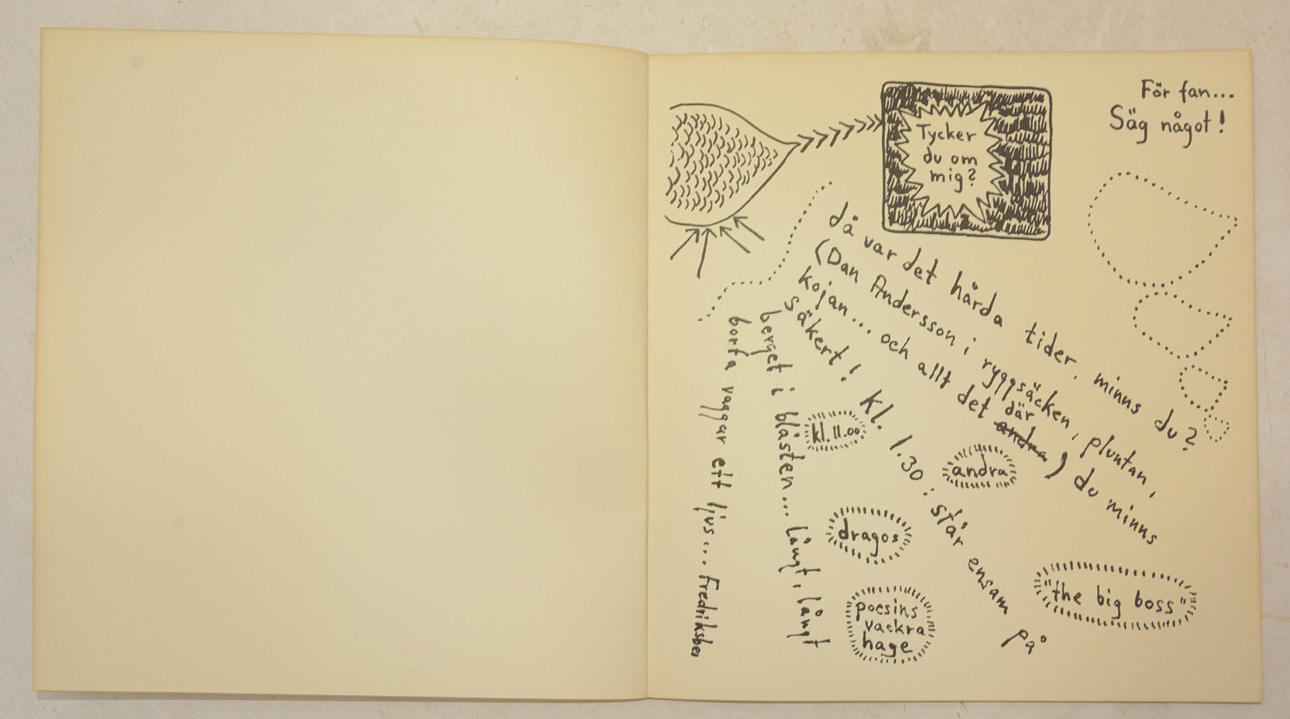 För fan...
Säg något!
Tycker
du om
mig?
då var det hårda tider, minns du?
(Dan Andersson i ryggsäcken, pluntan,
kojan... och allt det där andra) du minns
säkert! Kl. 1.30: står ensam på
berget i blåsten... långt, långt
borta vaggar ett ljus... Fredriksber
kl. 11.00
andra
dragos
"the big boss"
poesins
vackra
hage